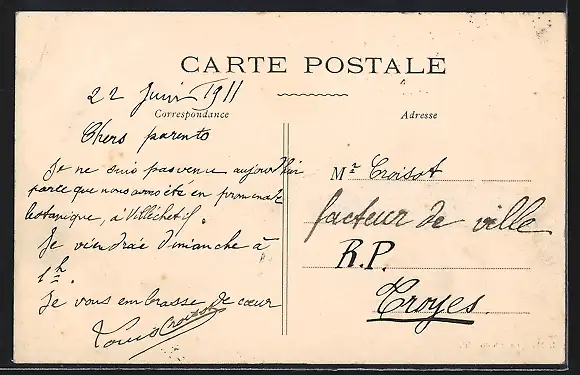 CARTE POSTALE
22 Juin 1911
Correspondance
Adresse
Chers parents
Je ne suis pas venu aujourd'hui
parce que nous avons été en promenade
botanique, à Villéchetif.
Je viendrai Dimanche à
1h.
Je vous embrasse de cœur
Louis Croisot
Mr Croisot
facteur de ville
R.P.
Troyes